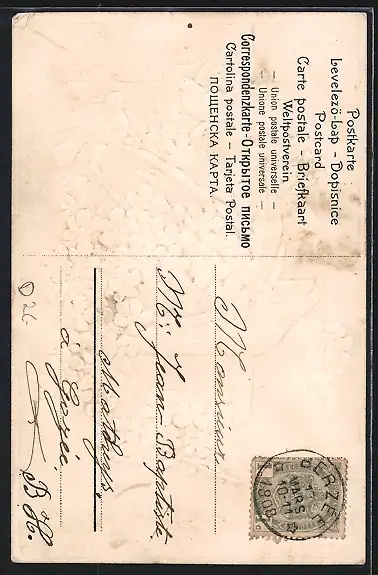 Postkarte
bevelező-Lap - Dopisnice
Postcard
Carte postale - Briefkaart
Weltpostverein
— Union postale universelle —
— Unione postale universale —
Correspondenzkarte-Открытое письмо
Cartolina postale – Tarjeta Postal.
ПОЩЕНСКА КАРТА.
Monsieur
Mr Jean-Baptiste
Mathys.
à Gerzée.
B H.
D26
GERZEE
MARS
10-11